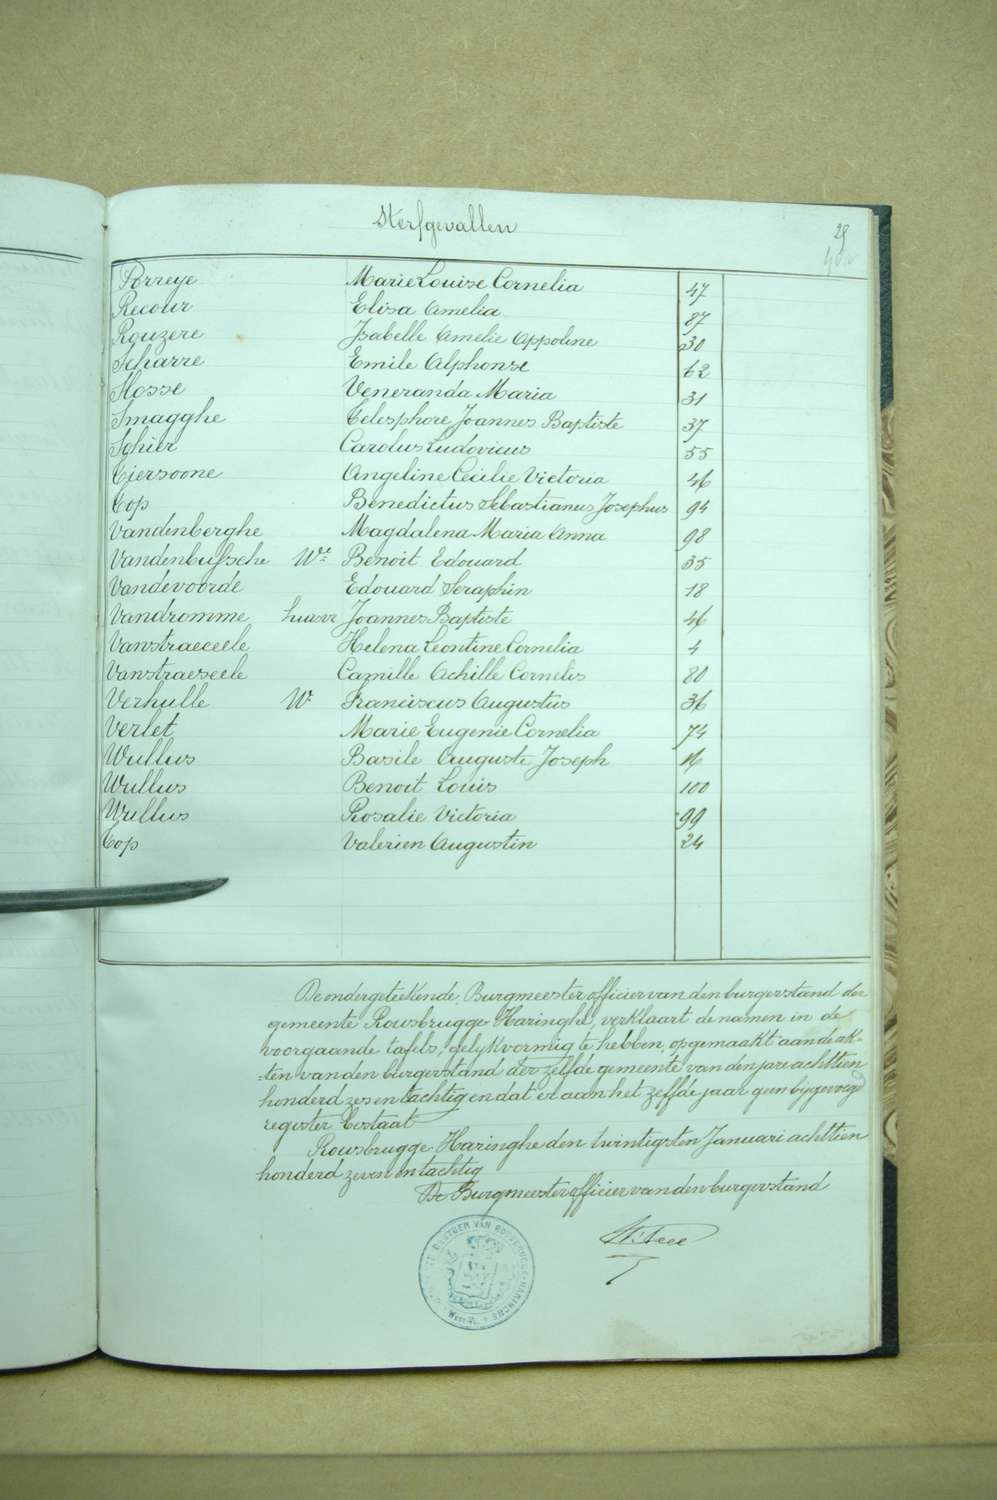 Sterfgevallen
28
Porreye Marie Louise Cornelia 47
Recour Elisa Amelia 87
Rouzere Isabelle Amelie Appoline 30
Scharre Emile Alphonse 62
Slosse Veneranda Maria 31
Smagghe Telesphore Joannes Baptiste 37
Sohier Carolus Ludovicus 55
Tiersoone Angeline Cecilie Victoria 46
Top Benedictus Sebastianus Josephus 94
Vandenberghe Magdalena Maria Anna 98
Vandenbussche We Benoit Edouard 35
Vandevoorde Edouard Seraphin 18
Vandromme huwe Joannes Baptiste 46
Vanstraeceele Helena Leontine Cornelia 4
Vanstraeseele Camille Achille Cornelis 80
Verhulle W Franciscus Augustus 36
Verlet Marie Eugenie Cornelia 74
Wullus Basile Auguste Joseph
Wullus Benoit Louis 100
Wullus Rosalie Victoria 99
Top Valerien Augustin 24
De ondergeteekende, Burgmeester officier van den burgerstand der
gemeente Rousbrugge Haringhe, verklaart de namen in de
voorgaande tafels, gelykvormig te hebben opgemaakt aan de ak-
-ten van den burgerstand der zelfde gemeente van den jare achttien
honderd zes en tachtig en dat er aan het zelfde jaar geen bygevoegd
register bestaat
Rousbrugge Haringhe den twintigsten Januari achttien
honderd zeven en tachtig
De Burgmeester officier van den burgerstand
BESTUUR VAN ROUSBRUGGE-HARINGHE
West-Vl.